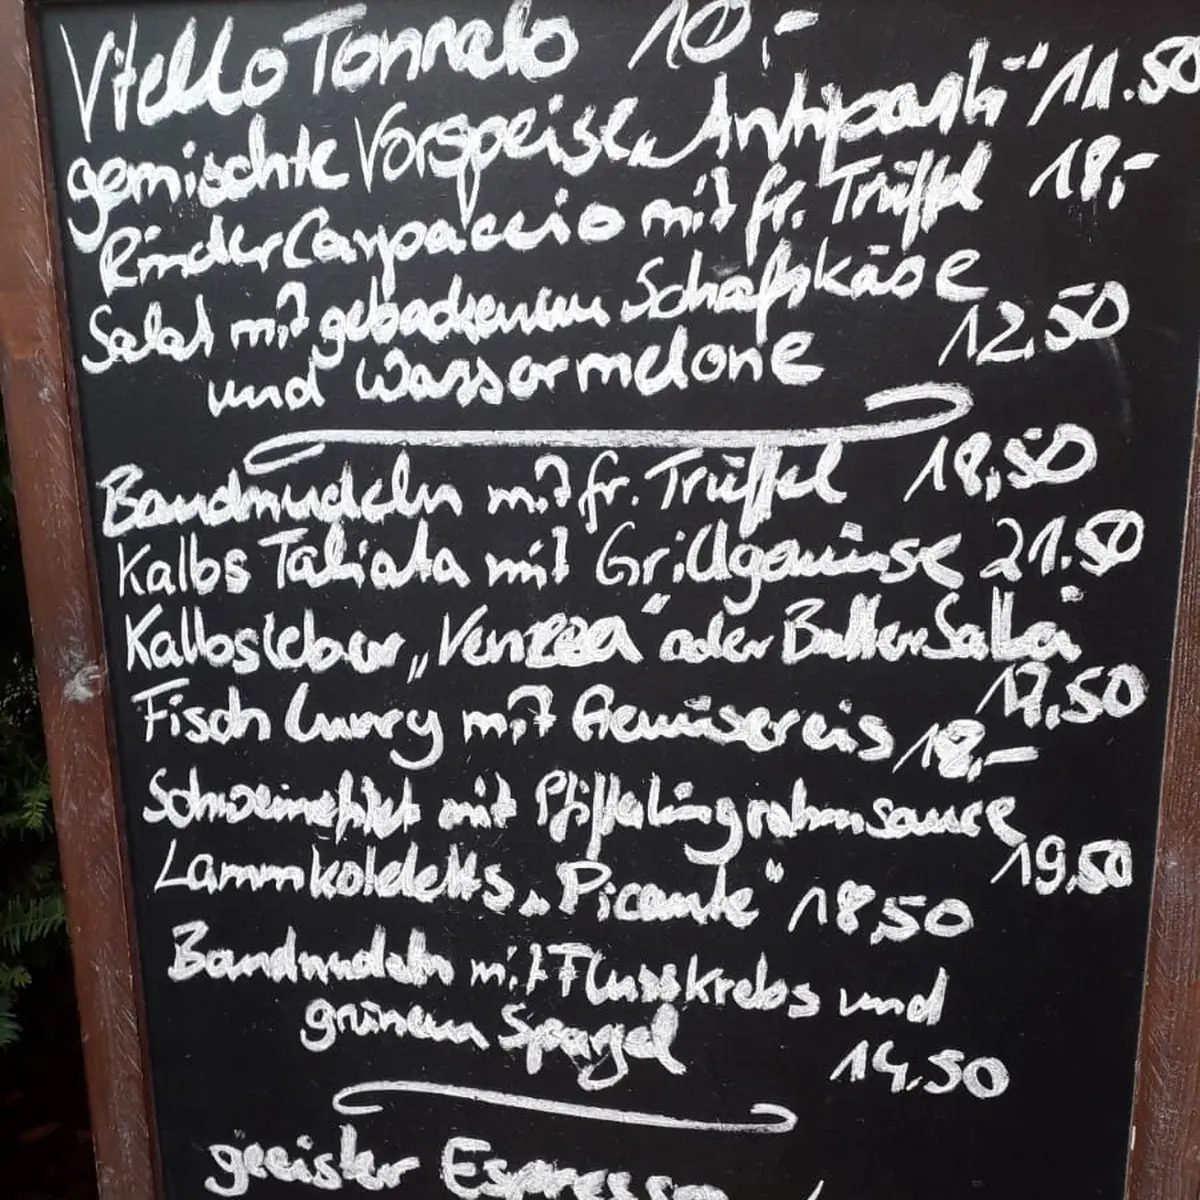 Vitello Tonnato 10,-
gemischte Vorspeise „Antipasti" 11.50
Rinder Carpaccio mit fr. Trüffel 18,-
Salat mit gebackenem Schafskäse
und Wassermelone 12.50
Bandnudeln mit fr. Trüffel 18,50
Kalbs Taliata mit Grillgemüse 21.50
Kalbsleber „Veneza" oder Butter Salbei
17.50
Fisch Curry mit Gemüsereis 18,-
Schweinefilet mit Pfifferlingrahmsauce
19.50
Lammkoteletts „Picante" 18,50
Bandnudeln mit Flusskrebs und
grünem Spargel
14.50
geeister Espresso